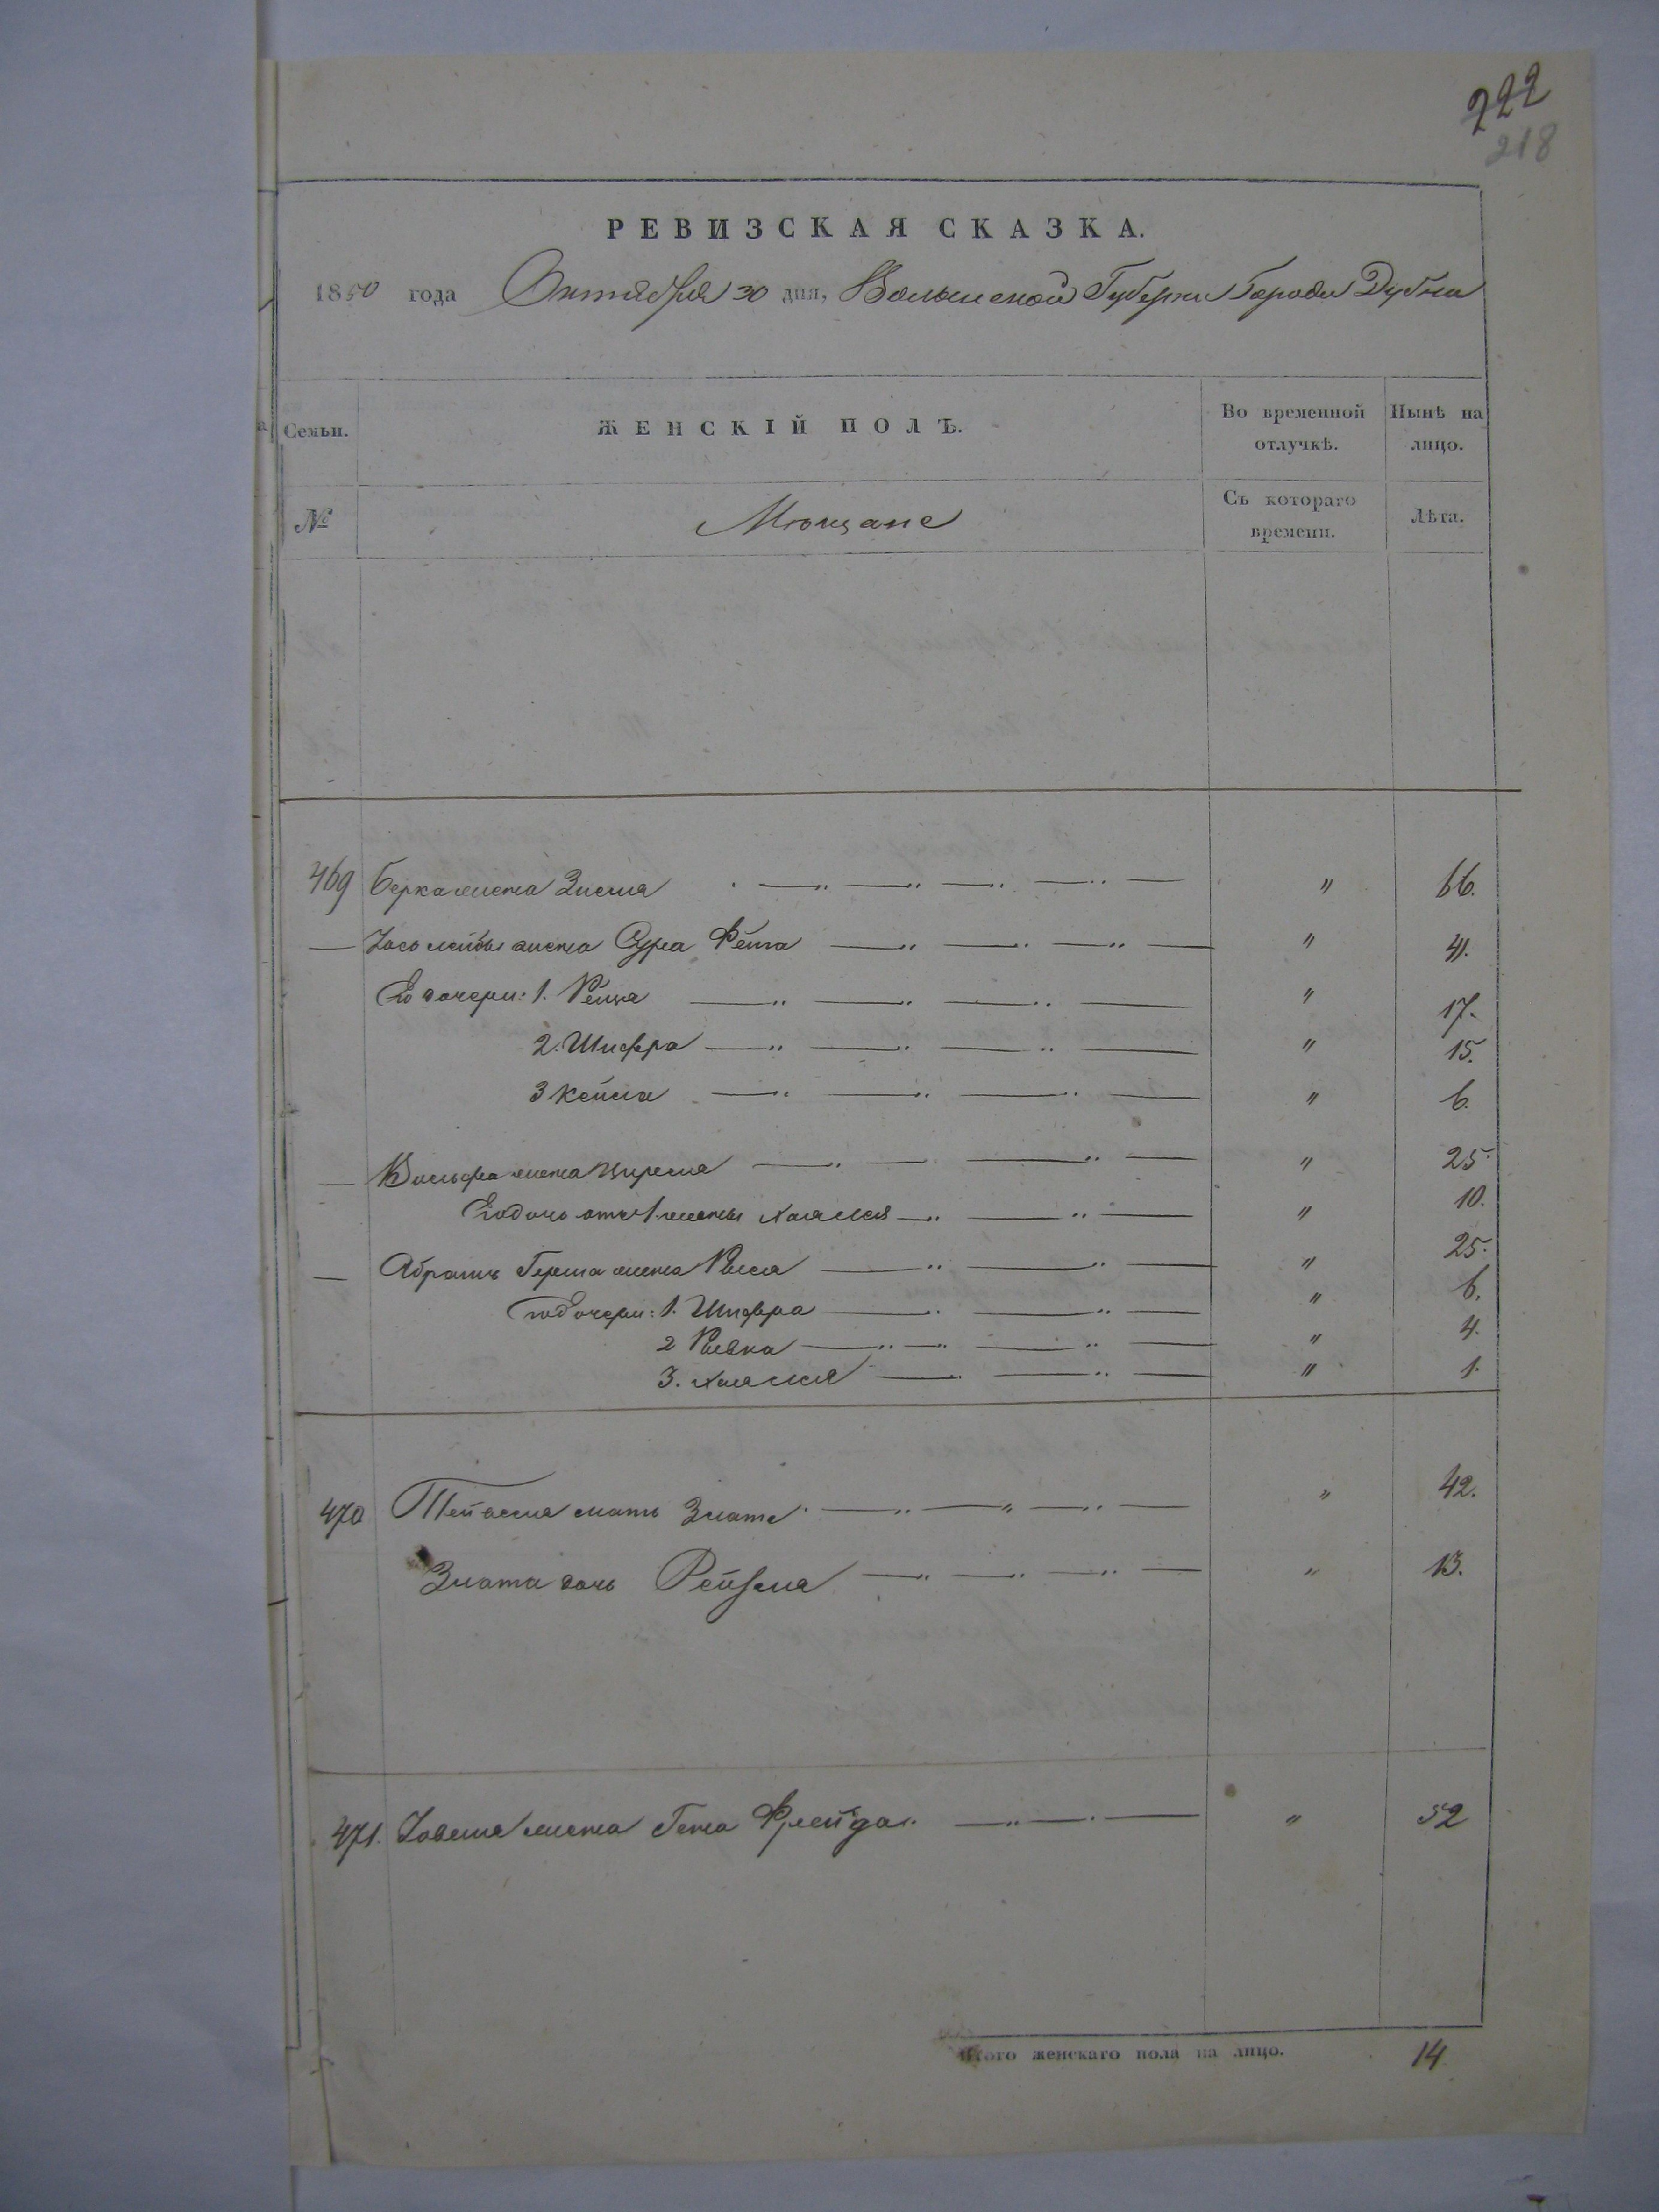 222
218
РЕВИЗСКАЯ СКАЗКА.
1850 года Октября 30 дня, Волынской Губернии Города Дубна
Семьи. ЖЕНСКІЙ ПОЛЪ. Во временной отлучкѣ. Нынѣ на лицо.
№ Мѣщане Съ котораго времени. Лѣта.
469 Берка жена Зисля " 66.
— Іось Лейбы жена Сура Фейга " 41.
Его дочери: 1. " 17.
2. Шифра " 15.
3 Кейла " 6.
— Вольфа жена Цирля " 25.
Его дочь отъ 1 жены Хая " 10.
— Абрамъ Герша жена " 25.
Его дочери: 1. Шифра " 6.
2 Ривка " 4.
3. Хая " 1.
470 мать Злата " 42.
Злата дочь Рейзля " 13.
471. жена Гена Фрейда " 52
Итого женскаго пола на лицо. 14